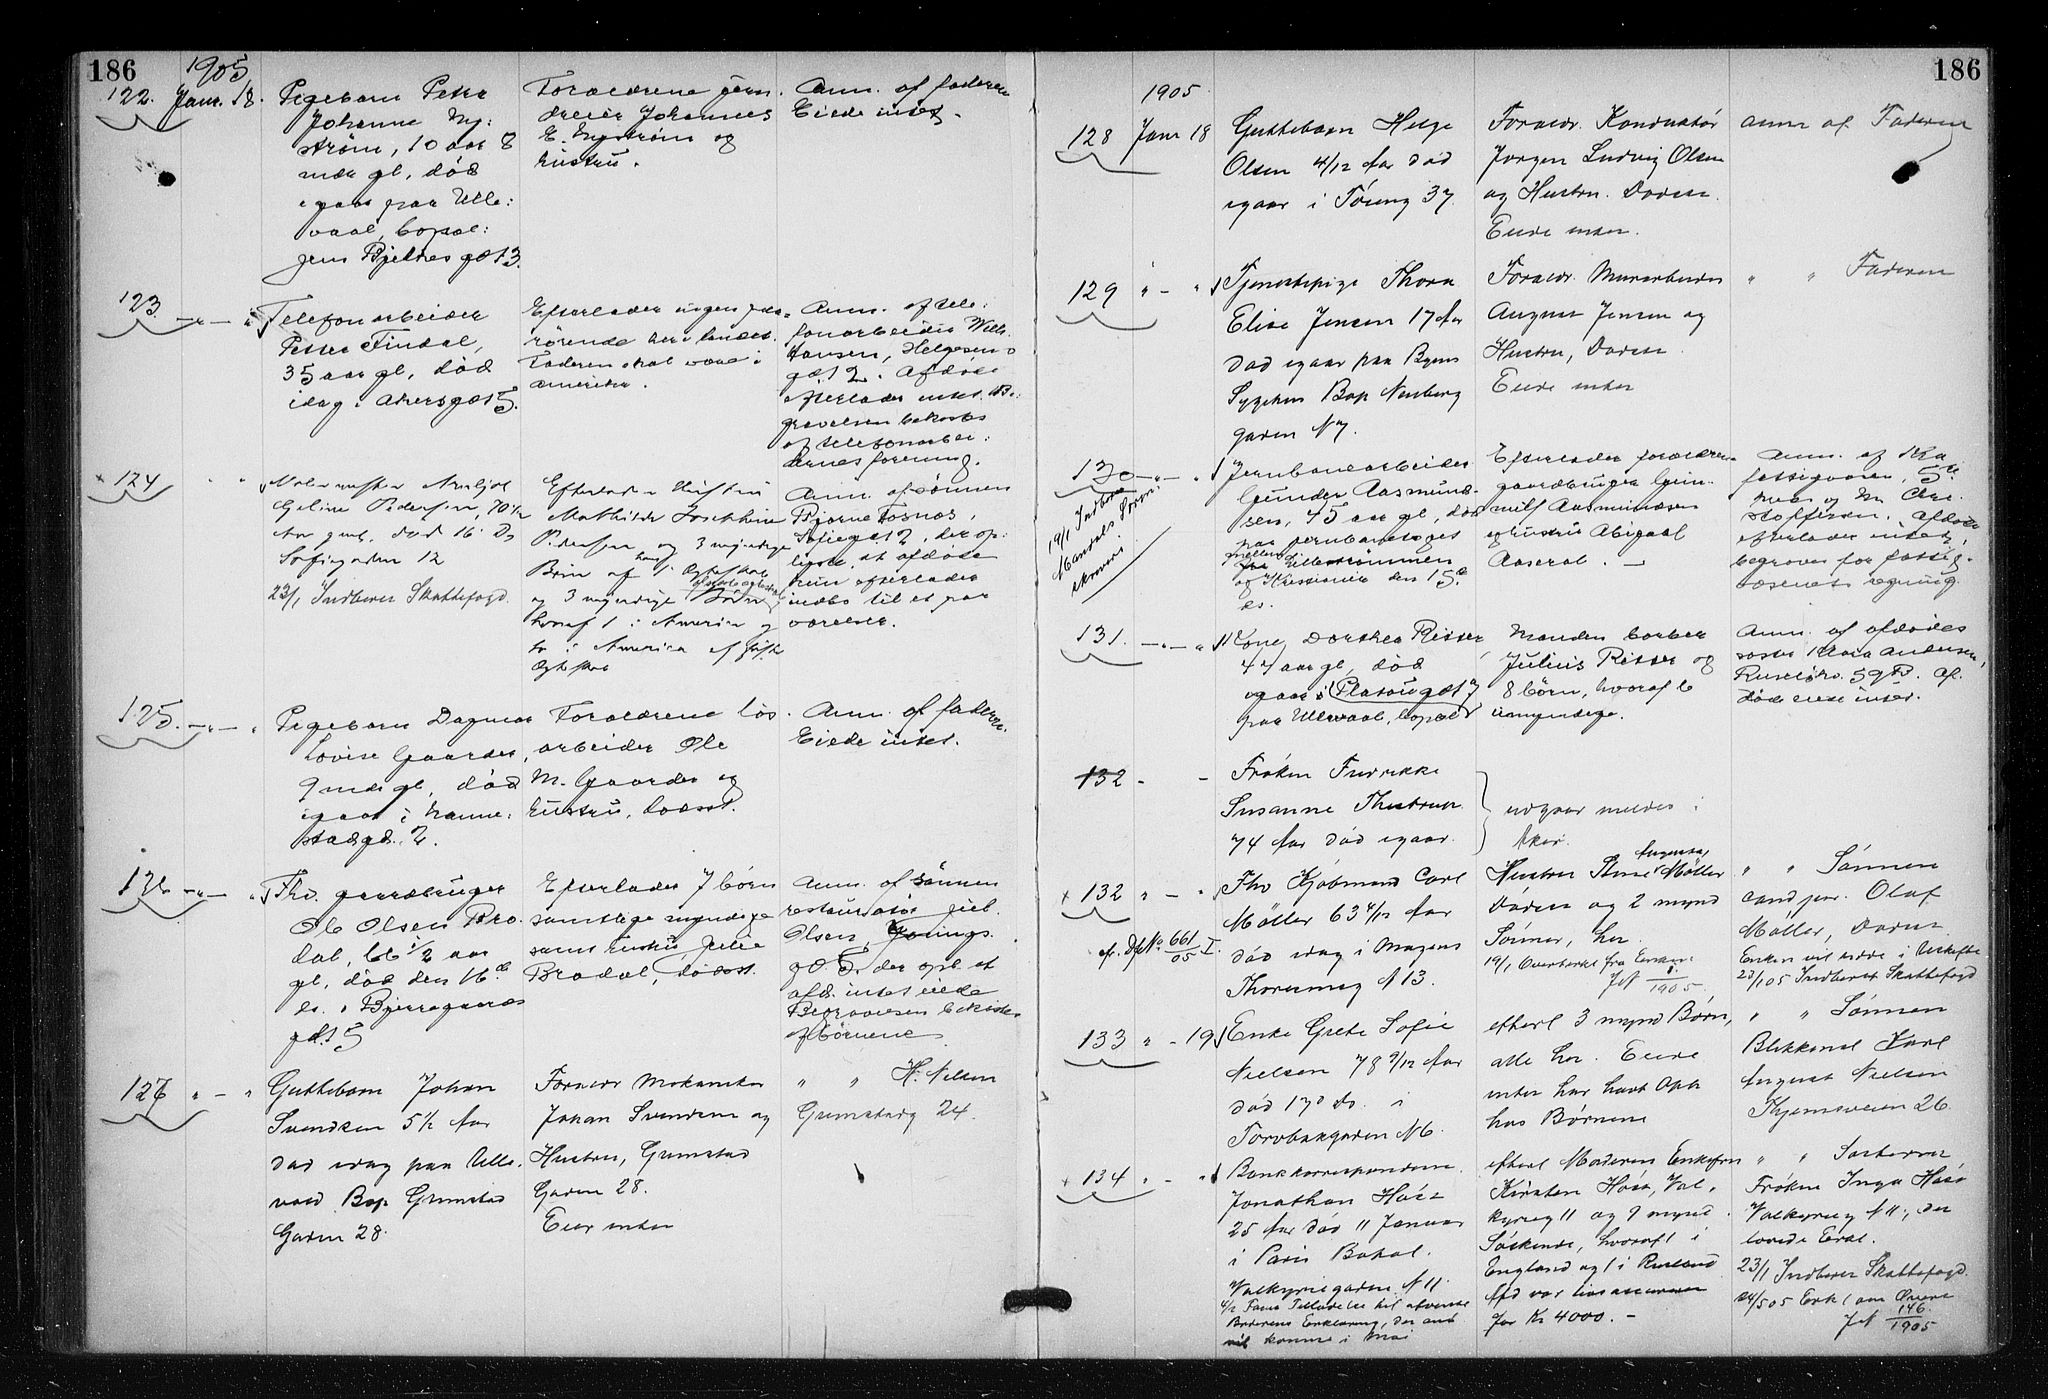 186
1905
122. Janr. 18.
Pigebarn Petra
Johanne Ny:
strøm, 10 aar 8
mdr gl, død
igaar paa Ulle:
vaal, bopæl:
Bjelkes gd 13.
Forældrene jern
dreier Johannes
E. Nystrøm og
hustru.
Anm. af faderen
Eiede intet.
123.
Telefonarbeider
Petter Findal,
35 aar gl, død
idag i Akersgd 5.
Efterlader ingen paa-
rørende her i landet.
Faderen skal være i
Amerika.
Anm. af tele:
fonarbeider Wilh.
Hansen, Helgesens
gd 2. Afdøde
efterlader intet. Be:
gravelsen bekostes
af telefonarbei:
dernes forening.
× 124
Malermester
Pedersen, 70 1/2
Aar gml. død 16 Ds
Sofiegaden 12
23/1 Indberet Skattefogd.
Efterlader Hustru
Mathilde Josephine
Pedersen og 3 myndige
Børn af 1. Ægteskab
og 3 myndige Børn
hvoraf 1 i Amerika og
i Amerika af første
Ægteskab
Anm. af sønnen
Bjarne Fosnæs,
Sofiegd 12, der op:
lyste, at afdøde
kun efterlader
indbo til et par
værelser.
125.
Pigebarn Dagmar
Lovise Gaarder,
9 mdr gl, død
igaar i Nanne:
stadgd. 2.
Forældrene løs
arbeider Ole
M. Gaarder og
hustru, boesat.
Anm. af faderen.
Eiede intet.
126
Fhv. gaardbruger
Ole Olsen Bro
dal, 66 1/2 aar
gl, død den 16 d
ds. i Bjerregaards
gd. 5
Efterlader 7 børn
samtlige myndige
samt hustru, Julie
Brodal, boesat.
Anm. af sønnen
restauratør Juel
Olsen,
gd. 5, der opl. at
afd. intet eiede
Begravelsen bekostes
af børnene.
127
Guttebarn Johan
Svendsen 5 1/2 Aar
død idag paa Ulle.
vold Bop. Grimstad
Gaden 28.
Forældr Mekaniker
Johan Svendsen og
Hustru, Grimstad
Gaden 28.
Eier intet
" " H. Nilsen
Grimstadg 24.
186
1905
128 Janr 18
Guttebarn Helge
Olsen 4/12 Aar død
igaar i Tøieng 37.
Forældr. Konduktør
Jørgen Ludvig Olsen
og Hustru. Dersted.
Eiede intet.
Anm af Faderen
129 " - "
Tjenestepige Thora
Elise Jensen 17 Aar
død igaar paa Byens
Sygehus Bop Nordberg
gaden N 7.
Forældr. Murarbeider
August Jensen og
Hustru,
Eiede intet
" " Faderen
130
19/1 Indberet
Mandals Sorenskriveri
Jernbanearbeider
Gunder Aasmund-
sen, 45 aar gl, død
paa jernbanetoget
mellem Lillestrømmen
og Kristiania den 15 d
ds.
Efterlader forældrene
gaardbruger Gun
nulf Aasmundsen
og hustru Abigael
Aaseral. —
Anm. af Kra
fattigvæsen, 5 te
kreds og Chri-
stoffersen. Afdøde
efterlader intet,
begraves for fattig-
væsenets regning.
131.
Kone Dorthea Ritter
47 aar gl, død
igaar paa Ullevaal, bopæl
Platougd 7
Manden barber
Julius Ritter og
8 børn, hvoraf 6
umyndige.
Anm. af afdødes
søster Klara Andersen,
59 gB. Af.
døde eiede intet.
132 - -
Frøken Fredrikke
Susanne Thestrup
74 Aar død igaar.
udgaar meldes i
Aker.
× 132 " - "
cf. Dfl No. 661/05 I.
Fhv Kjøbmand Carl
Møller 63 4/12 Aar
død idag i Magnus
Thranesveig N 13.
Hustru Stine Augusta Møller
Dersted og 2 mynd
Sønner, her.
19/1 Overherke fra Enken
Jf 1/1905.
" " Sønnen
cand jur. Olaf
Møller, Dersted
Enken vil sidde i Uskifte
23/1 05 Indberet Skattefogd
133 " - 19
Enke Grete Sofie
Nielsen 78 9/12 Aar
død 17 d ds. i
Torvbakgaden N 6.
efterl 3 mynd Børn,
alle her. Eiede
intet har havt Oph
hos Børnene
" " Sønnen
Blikkensl Karl
August Nielsen
Kjemsveien 26
× 134 " - "
Bankkorrespondent
Jonathan Høst
25 Aar død 11 Januar
i Paris Bopæl.
Valkyriegaden N 11.
komme i Mai
efterl Moderen Enkefru
Kirsten Høst, Val.
kyrieg 11 og 9 mynd.
Søskende, hvoraf 1 i
England og 1 i Rusland
Afd var livsassureret
for Kr 4000. –
" " Søsteren
Frøken Inga Høst
Valkyrieg N 11, der
lovede Erkl.
23/1 Indberet Skattefogd.
24/5 05 Erkl om
Jf 146/1905